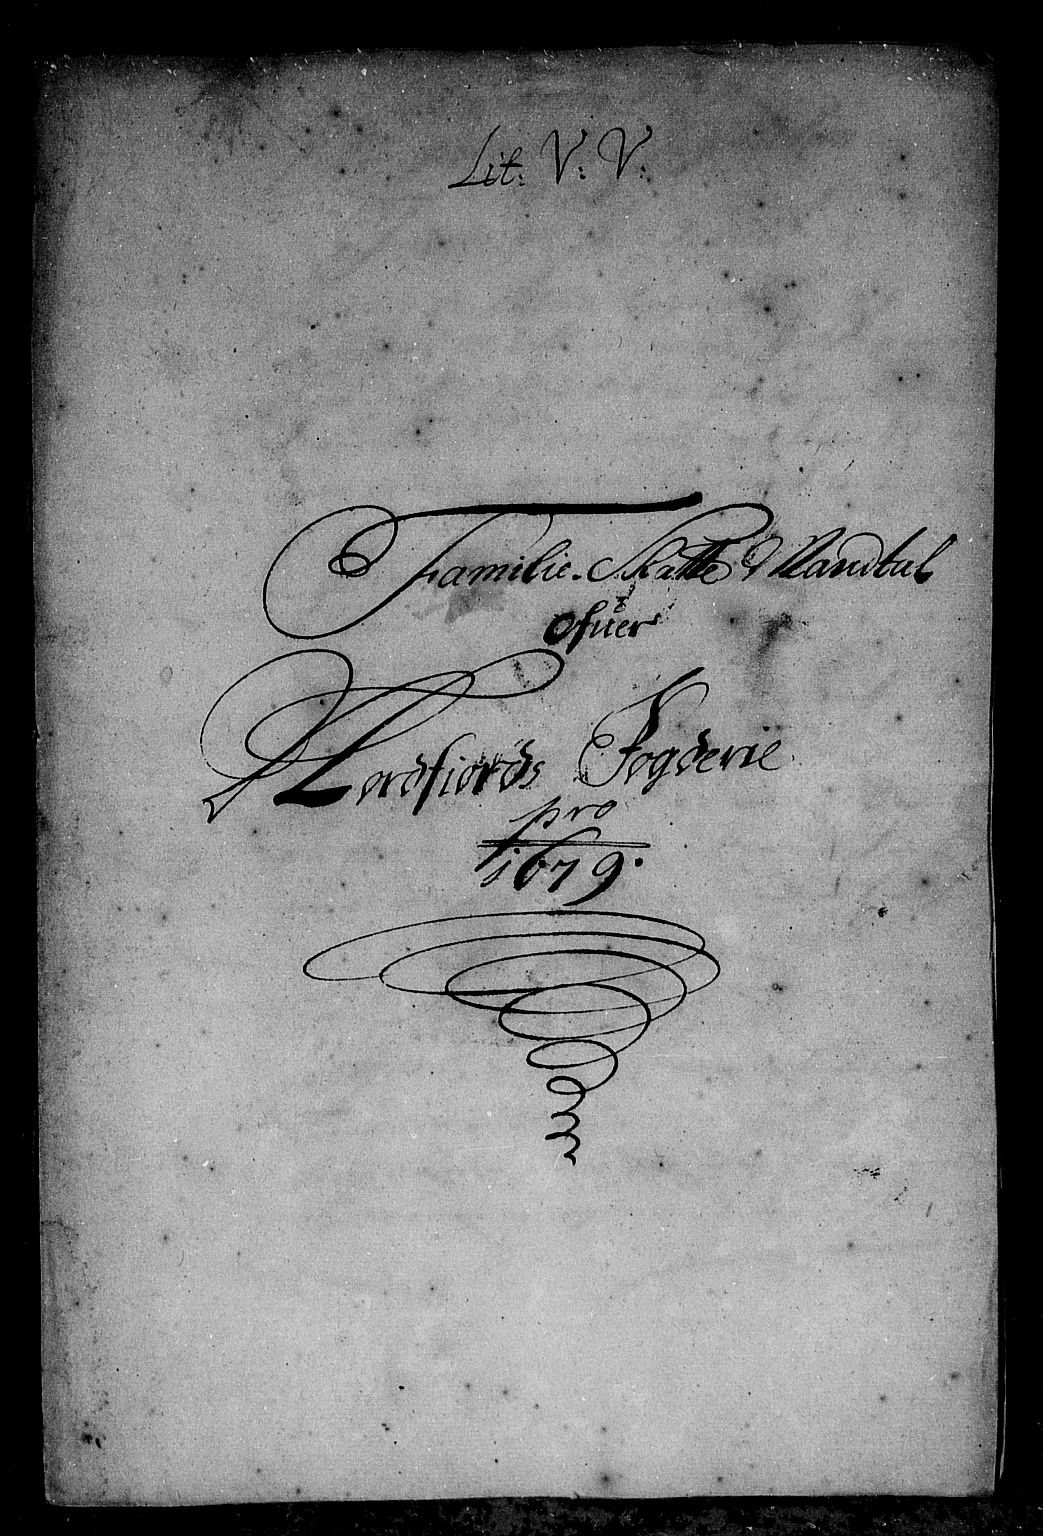 Lit: V: V:
Familie-Skatte Mandtal
Ofuer
Nordfiords Fogderie
pro
1679.